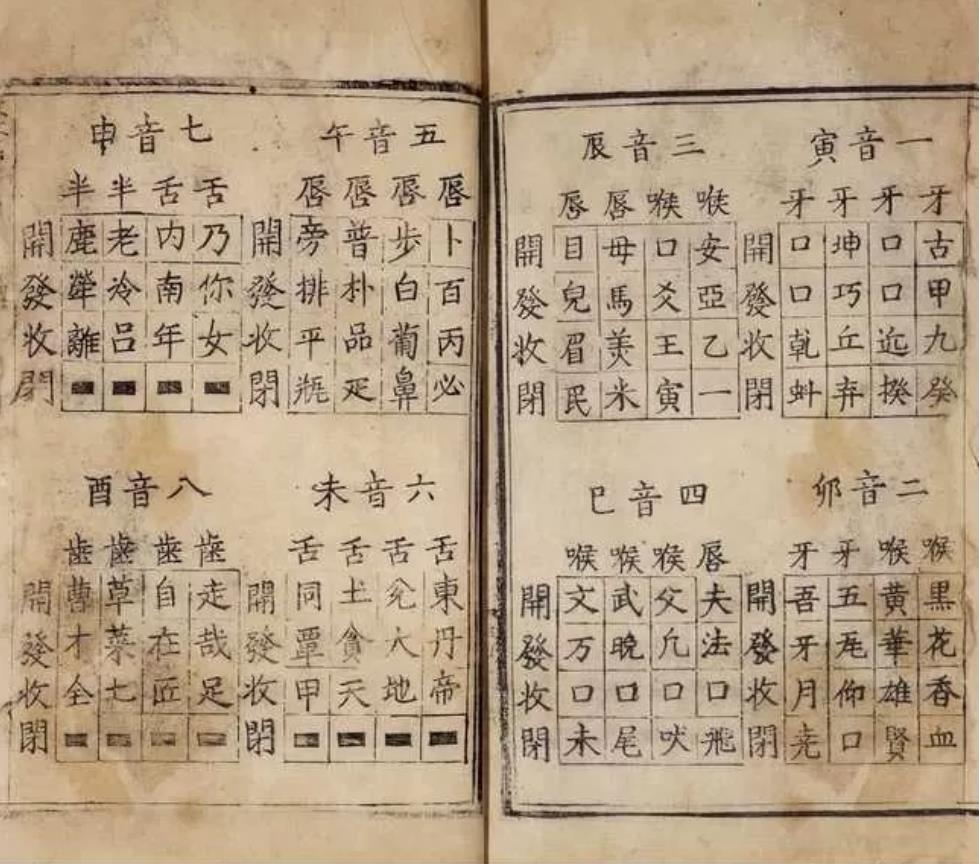 一音寅
牙牙牙牙
古□坤□開
甲□巧□發
九近丘乾收
癸揆弃蚪閉
二音卯
喉喉牙牙
黑黃五吾開
花華瓦牙發
香雄仰月收
血賢□堯閉
三音辰
喉喉唇唇
安□母目開
亞爻馬皃發
乙王美眉收
一寅米民閉
四音巳
唇喉喉喉
夫父武文開
法凡晚万發
□□□□收
飛吠尾未閉
五音午
唇唇唇唇
卜步普旁開
百白朴排發
丙葡品平收
必鼻疋瓶閉
六音未
舌舌舌舌
東兌土同開
丹大貪覃發
帝地天甲收
▬▬▬▬閉
七音申
舌舌半半
乃內老鹿開
你南冷犖發
女年呂離收
▬▬▬▬閉
八音酉
齒齒齒齒
走自草曹開
哉在菜才發
足匠七全收
▬▬▬▬閉